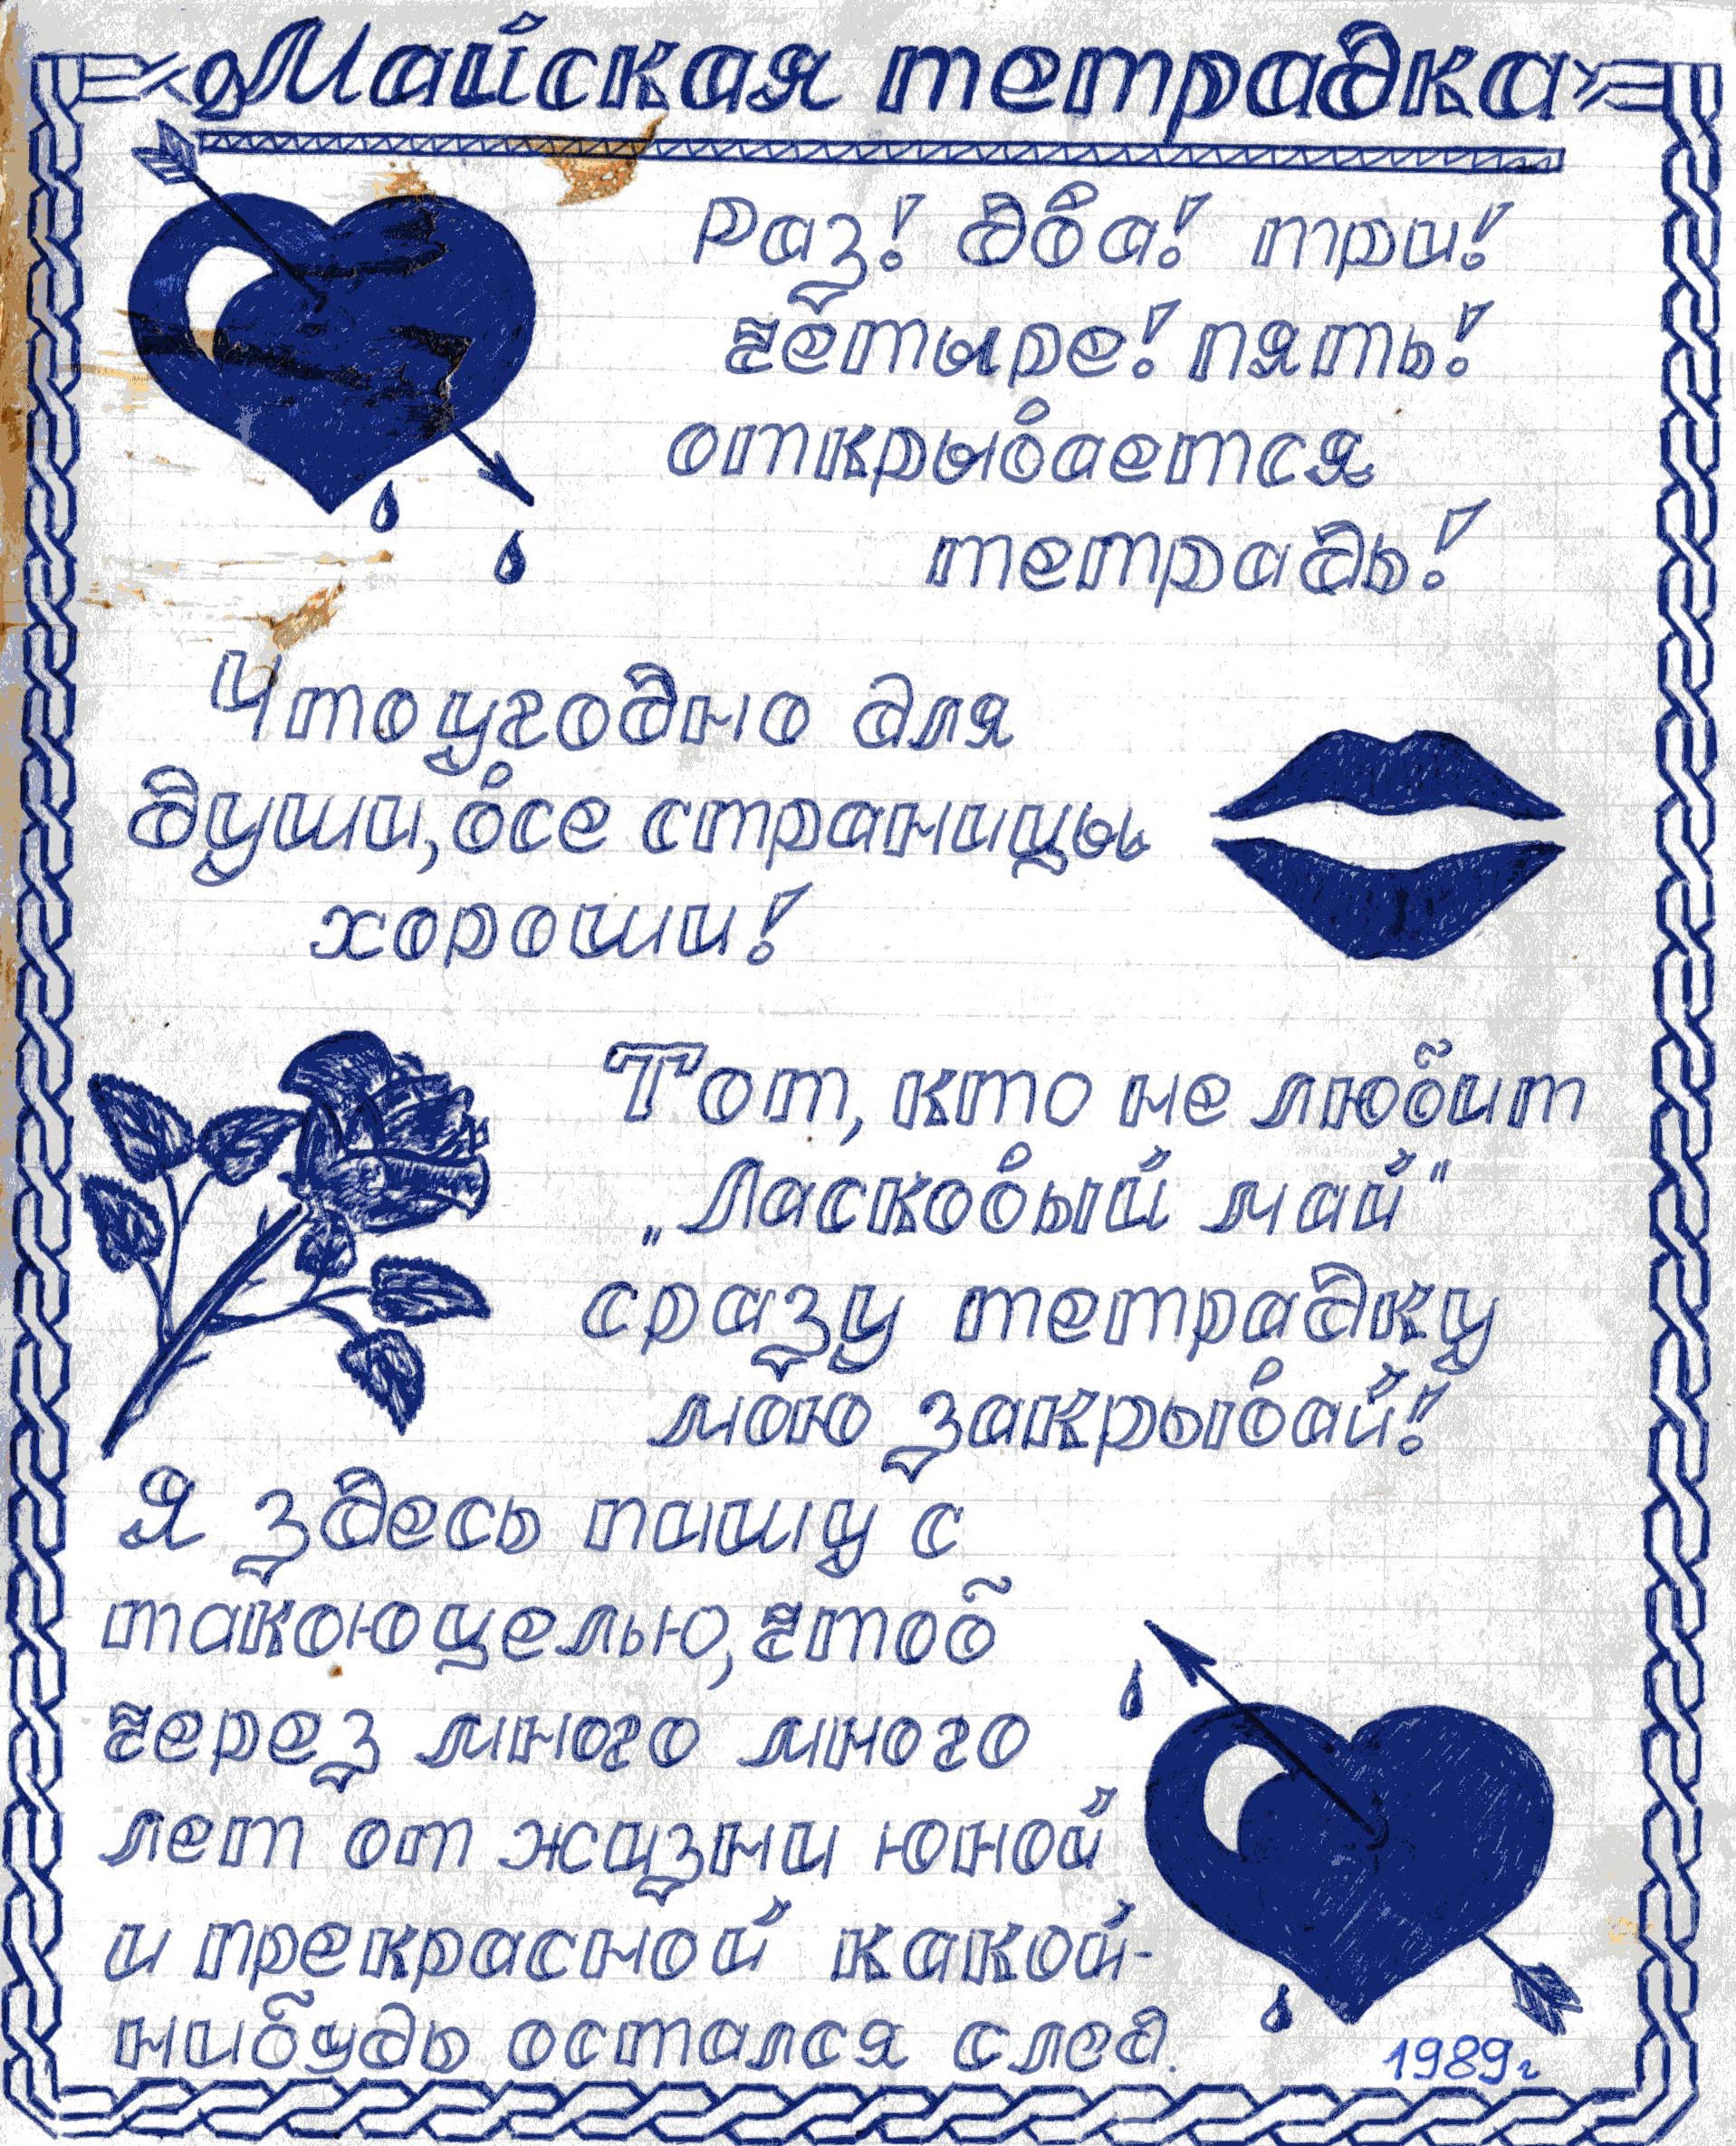 Майская тетрадка
Раз! два! три!
четыре! пять!
открывается
тетрадь!
Что угодно для
души, все страницы
хороши!
Тот, кто не любит
„Ласковый май"
сразу тетрадку
мою закрывай!
Я здесь пишу с
такою целью, чтоб
через много много
лет от жизни юной
и прекрасной какой-
нибудь остался след.
1989г